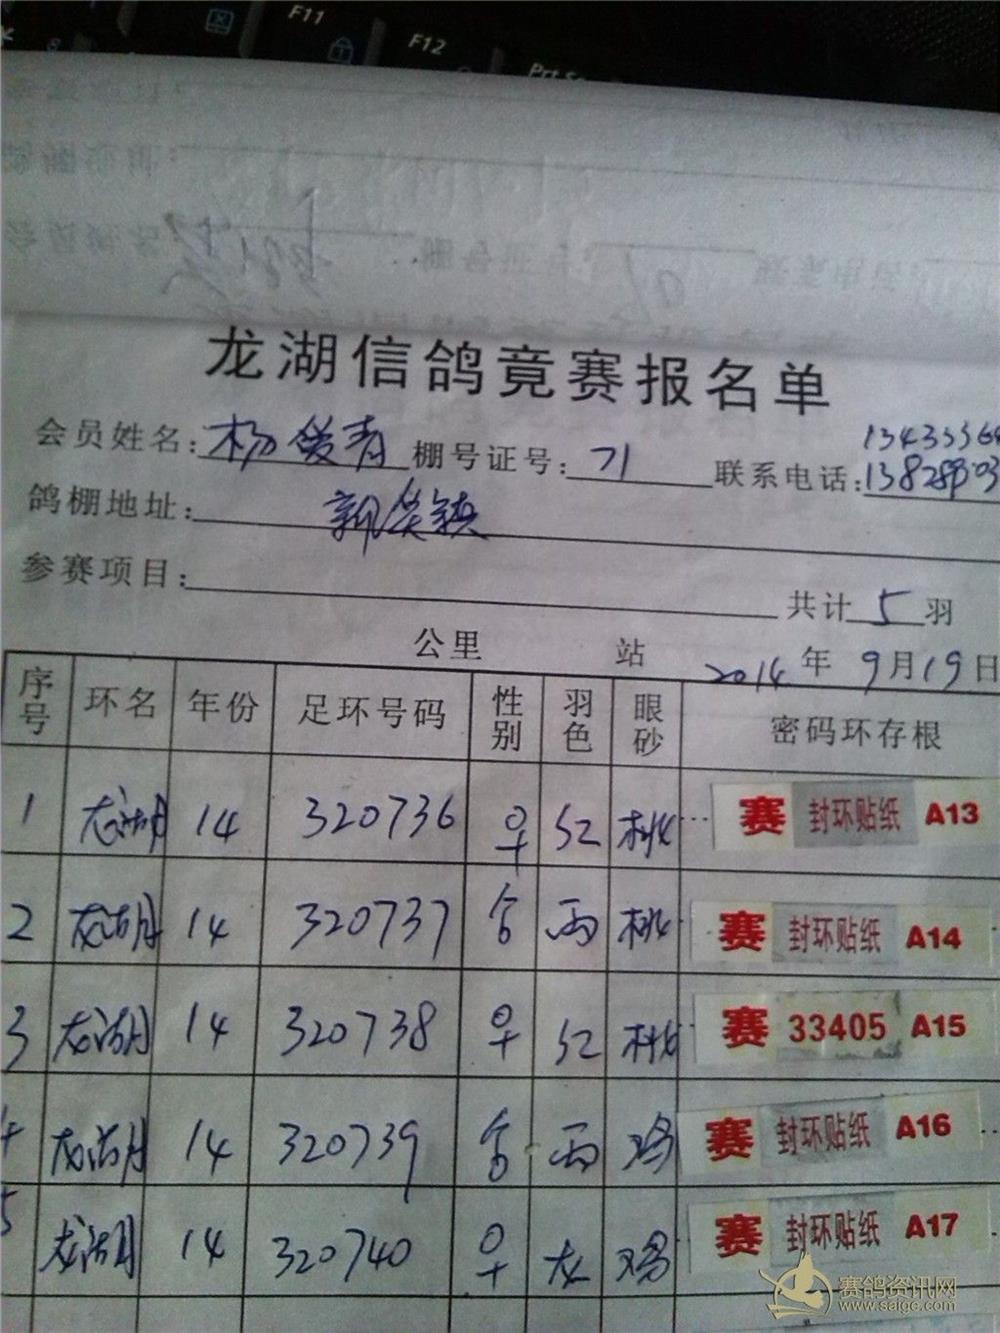 F11
F12
龙湖信鸽竟赛报名单
会员姓名: 杨俊青 棚号证号: 71 联系电话:
鸽棚地址:
参赛项目: 共计 5 羽
公里 站 2014 年 9 月 19 日
序号 环名 年份 足环号码 性别 羽色 眼砂 密码环存根
1 龙湖 14 320736 ♀ 红 桃 赛 封环贴纸 A13
2 龙湖 14 320737 雨 桃 赛 封环贴纸 A14
3 龙湖 14 320738 ♀ 红 桃 赛 33405 A15
4 龙湖 14 320739 雨 鸡 赛 封环贴纸 A16
5 龙湖 14 320740 ♀ 鸡 赛 封环贴纸 A17
赛鸽资讯网
www.saigc.com